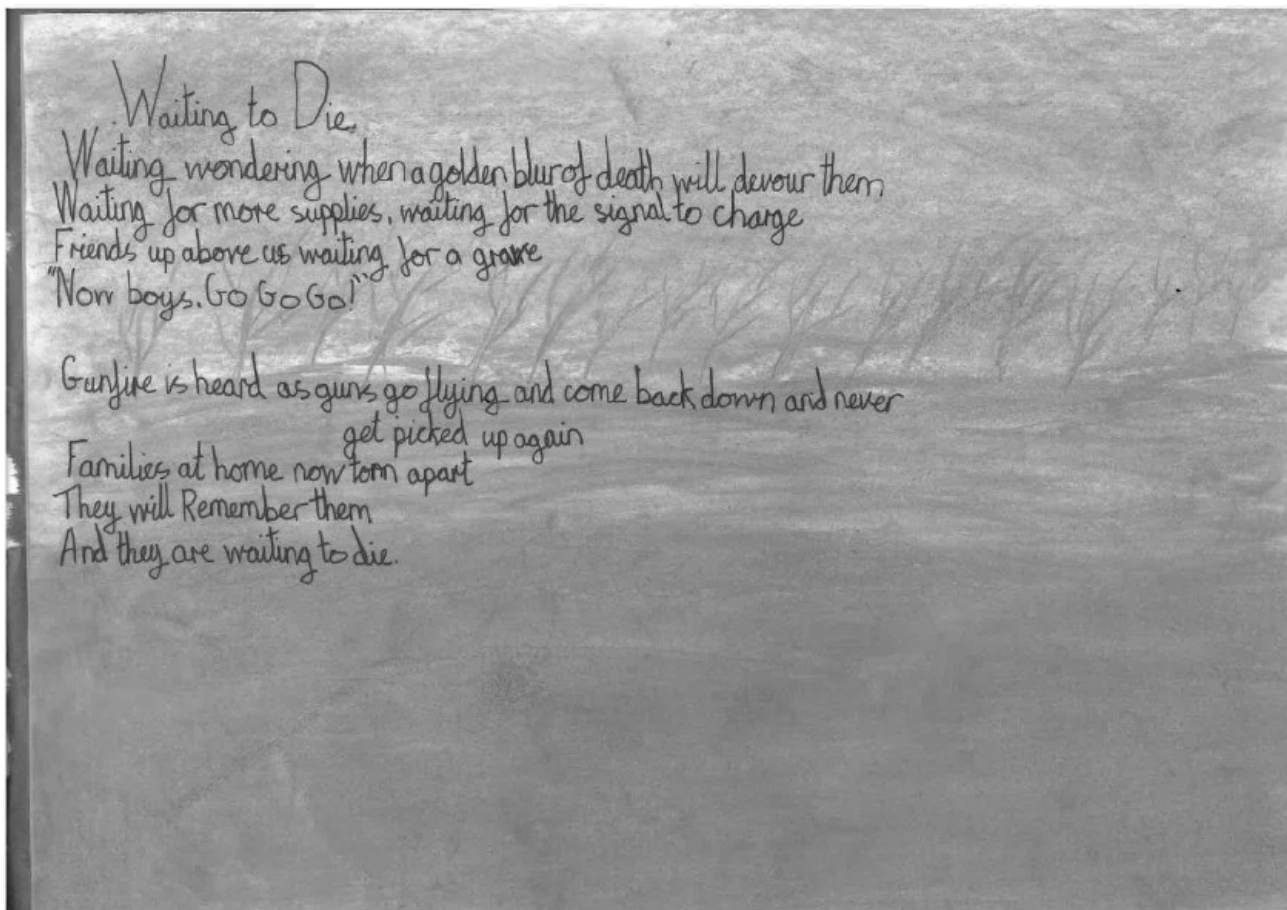 Waiting to Die.
Waiting wondering when a golden blur of death will devour them
Waiting for more supplies, waiting for the signal to charge
Friends up above us waiting for a grave
"Now boys. Go Go Go!"
Gunfire is heard as guns go flying and come back down and never
get picked up again
Families at home now torn apart
They will Remember them
And they are waiting to die.